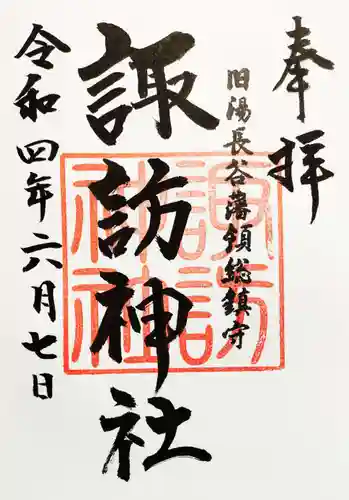 奉拝
旧湯長谷藩領総鎮守
諏訪神社
令和四年六月七日
諏訪
神社